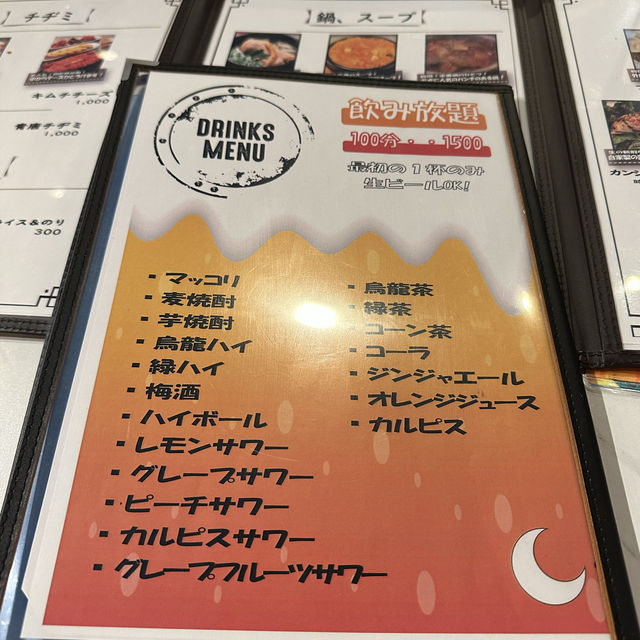 チヂミ
キムチチーズ
1,000
1,000
300
鍋、スープ
DRINKS
MENU
飲み放題
100分・・1500
最初の1杯のみ
生ビールOK!
・マッコリ
・麦焼酎
・芋焼酎
・烏龍ハイ
・緑ハイ
・梅酒
・ハイボール
・レモンサワー
・グレープサワー
・ピーチサワー
・カルピスサワー
・グレープフルーツサワー
・烏龍茶
・緑茶
・コーン茶
・コーラ
・ジンジャエール
・オレンジジュース
・カルピス